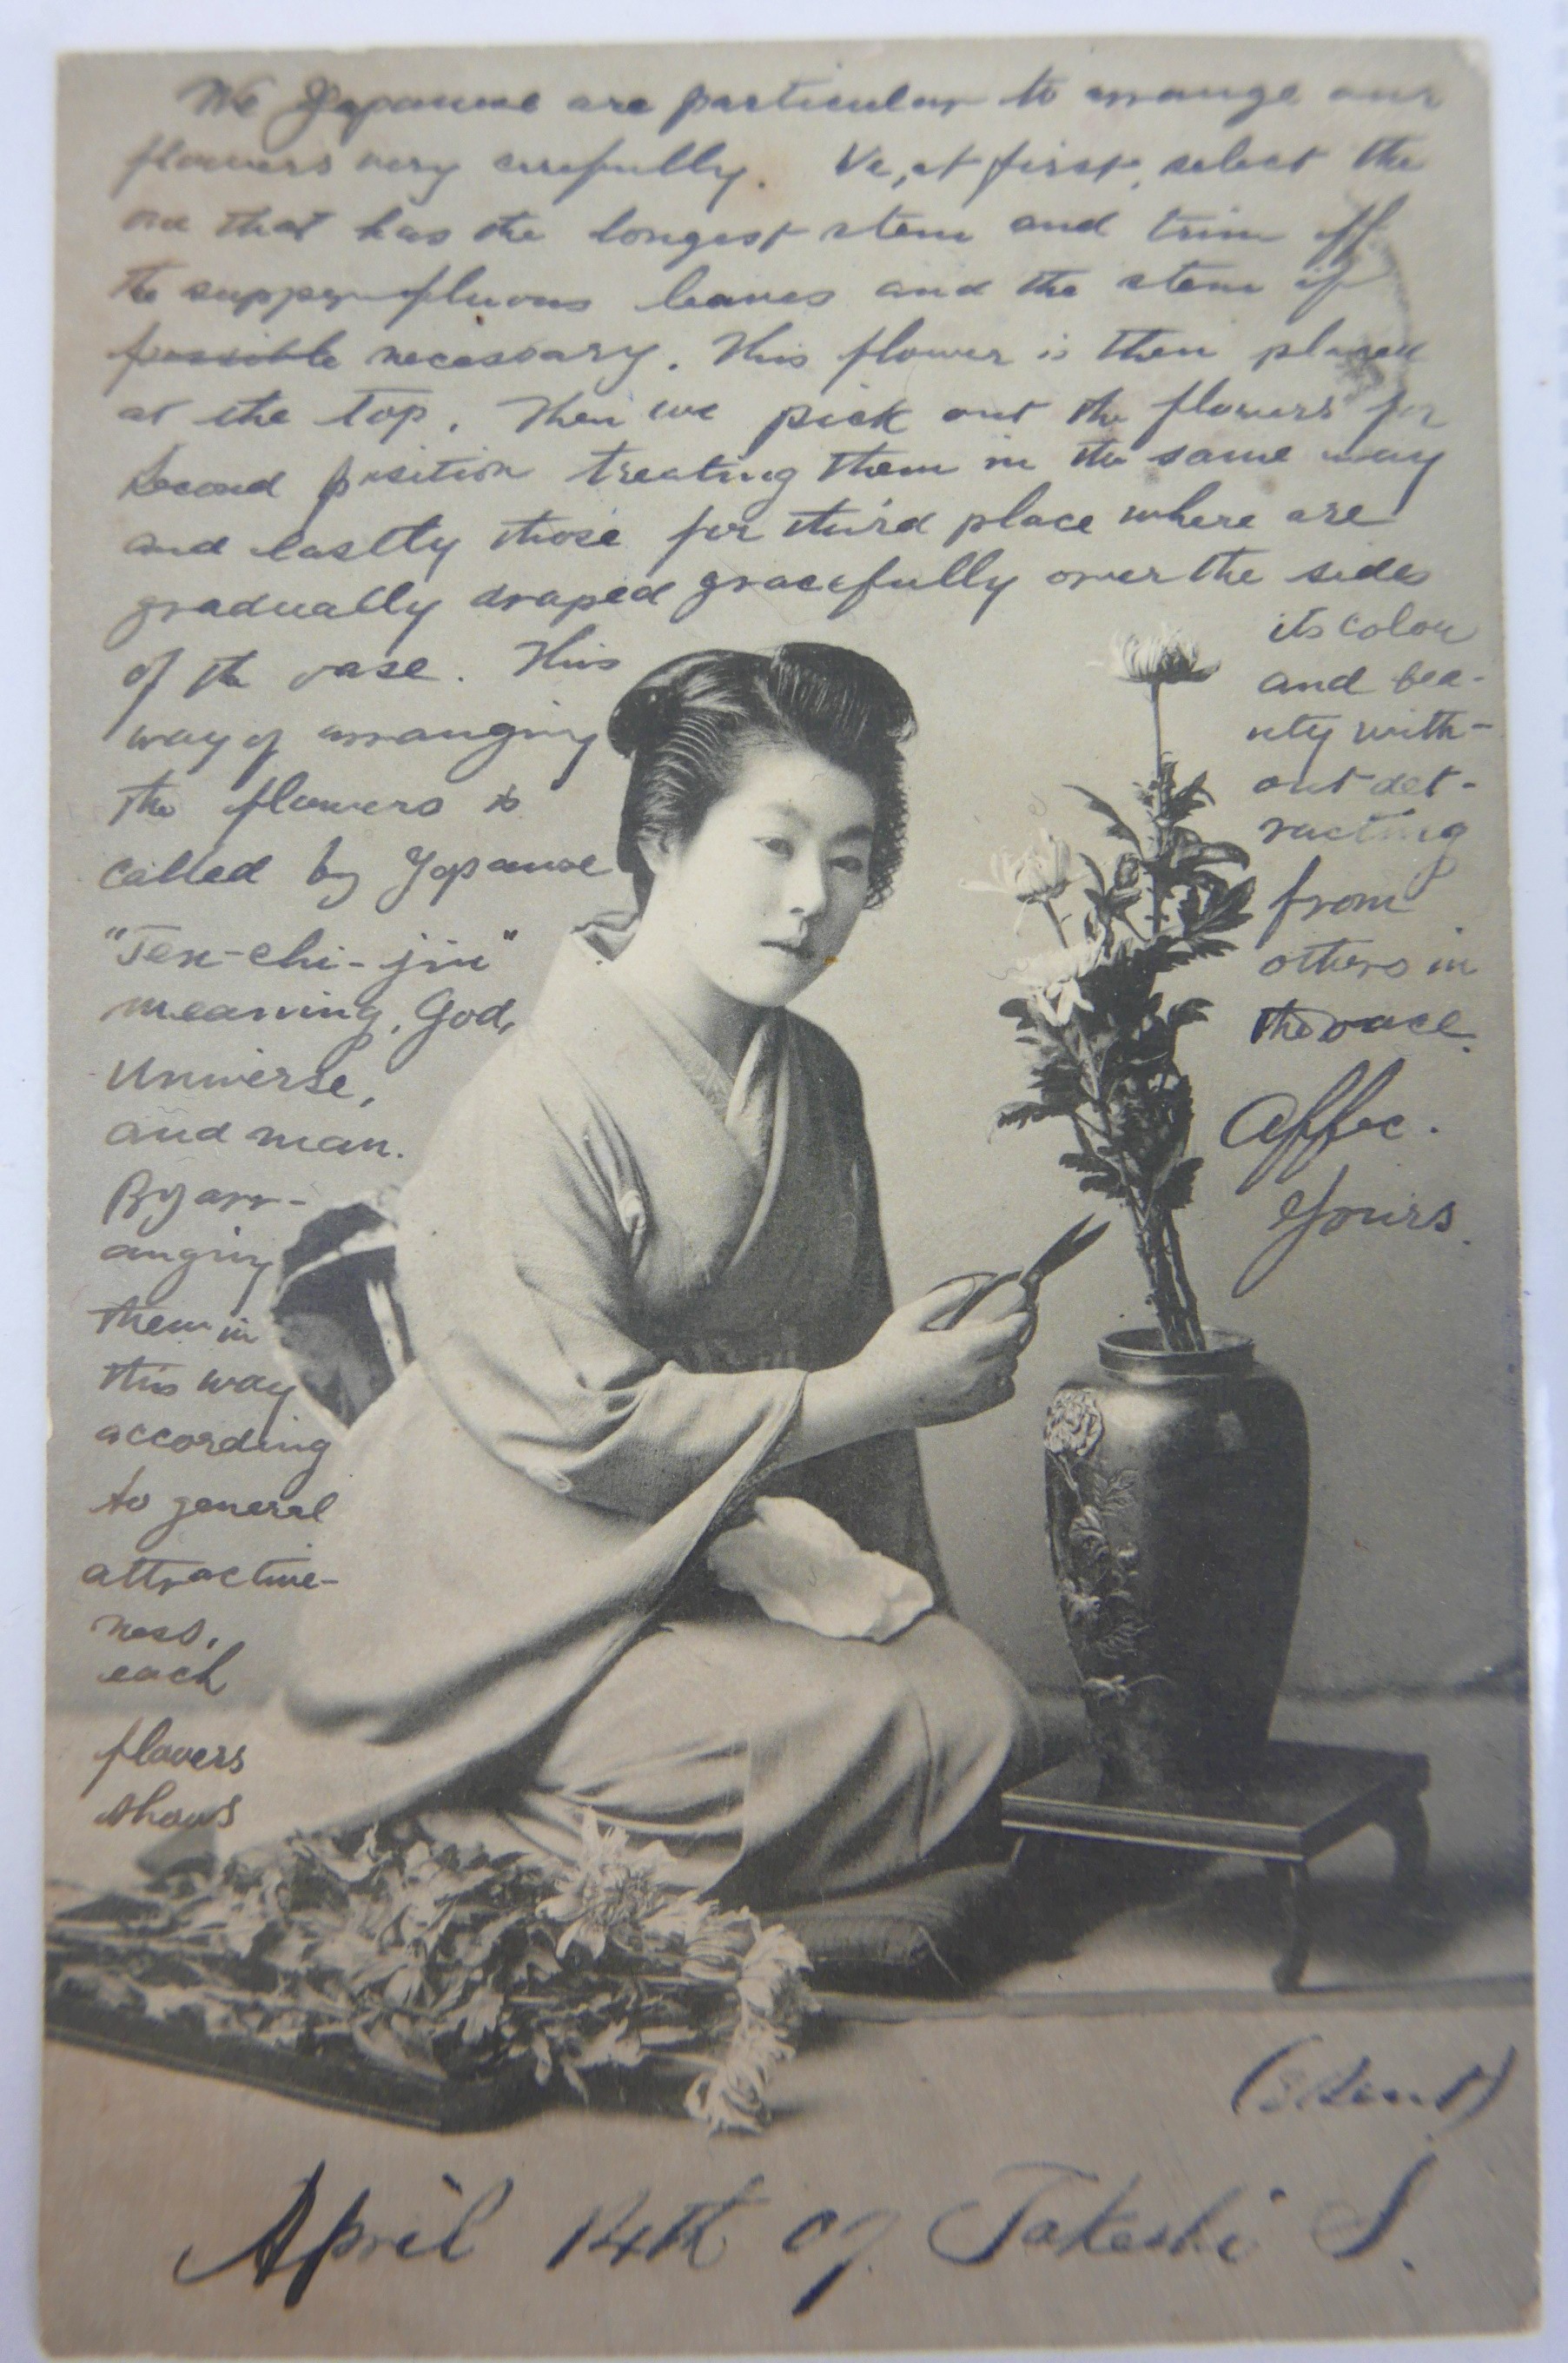 We Japanese are particular to arrange our
flowers very carefully. We, at first, select the
one that has the longest stem and trim off
the supper-fluous leaves and the stem if
possible necessary. This flower is then placed
at the top. Then we pick out the flowers for
second position treating them in the same way
and lastly those for third place where are
gradually draped gracefully over the sides
of the vase. This
way of arranging
the flowers is
called by Japanese
"Ten-chi-jin"
meaning, God,
Universe,
and man.
By arr-
anging
them in
this way
according
to general
attractive-
ness,
each
flowers
shows
its colour
and bea-
uty with-
out det-
racting
from
others in
the vace.
Affec.
Yours.
April 14th 07. Takeshi S.